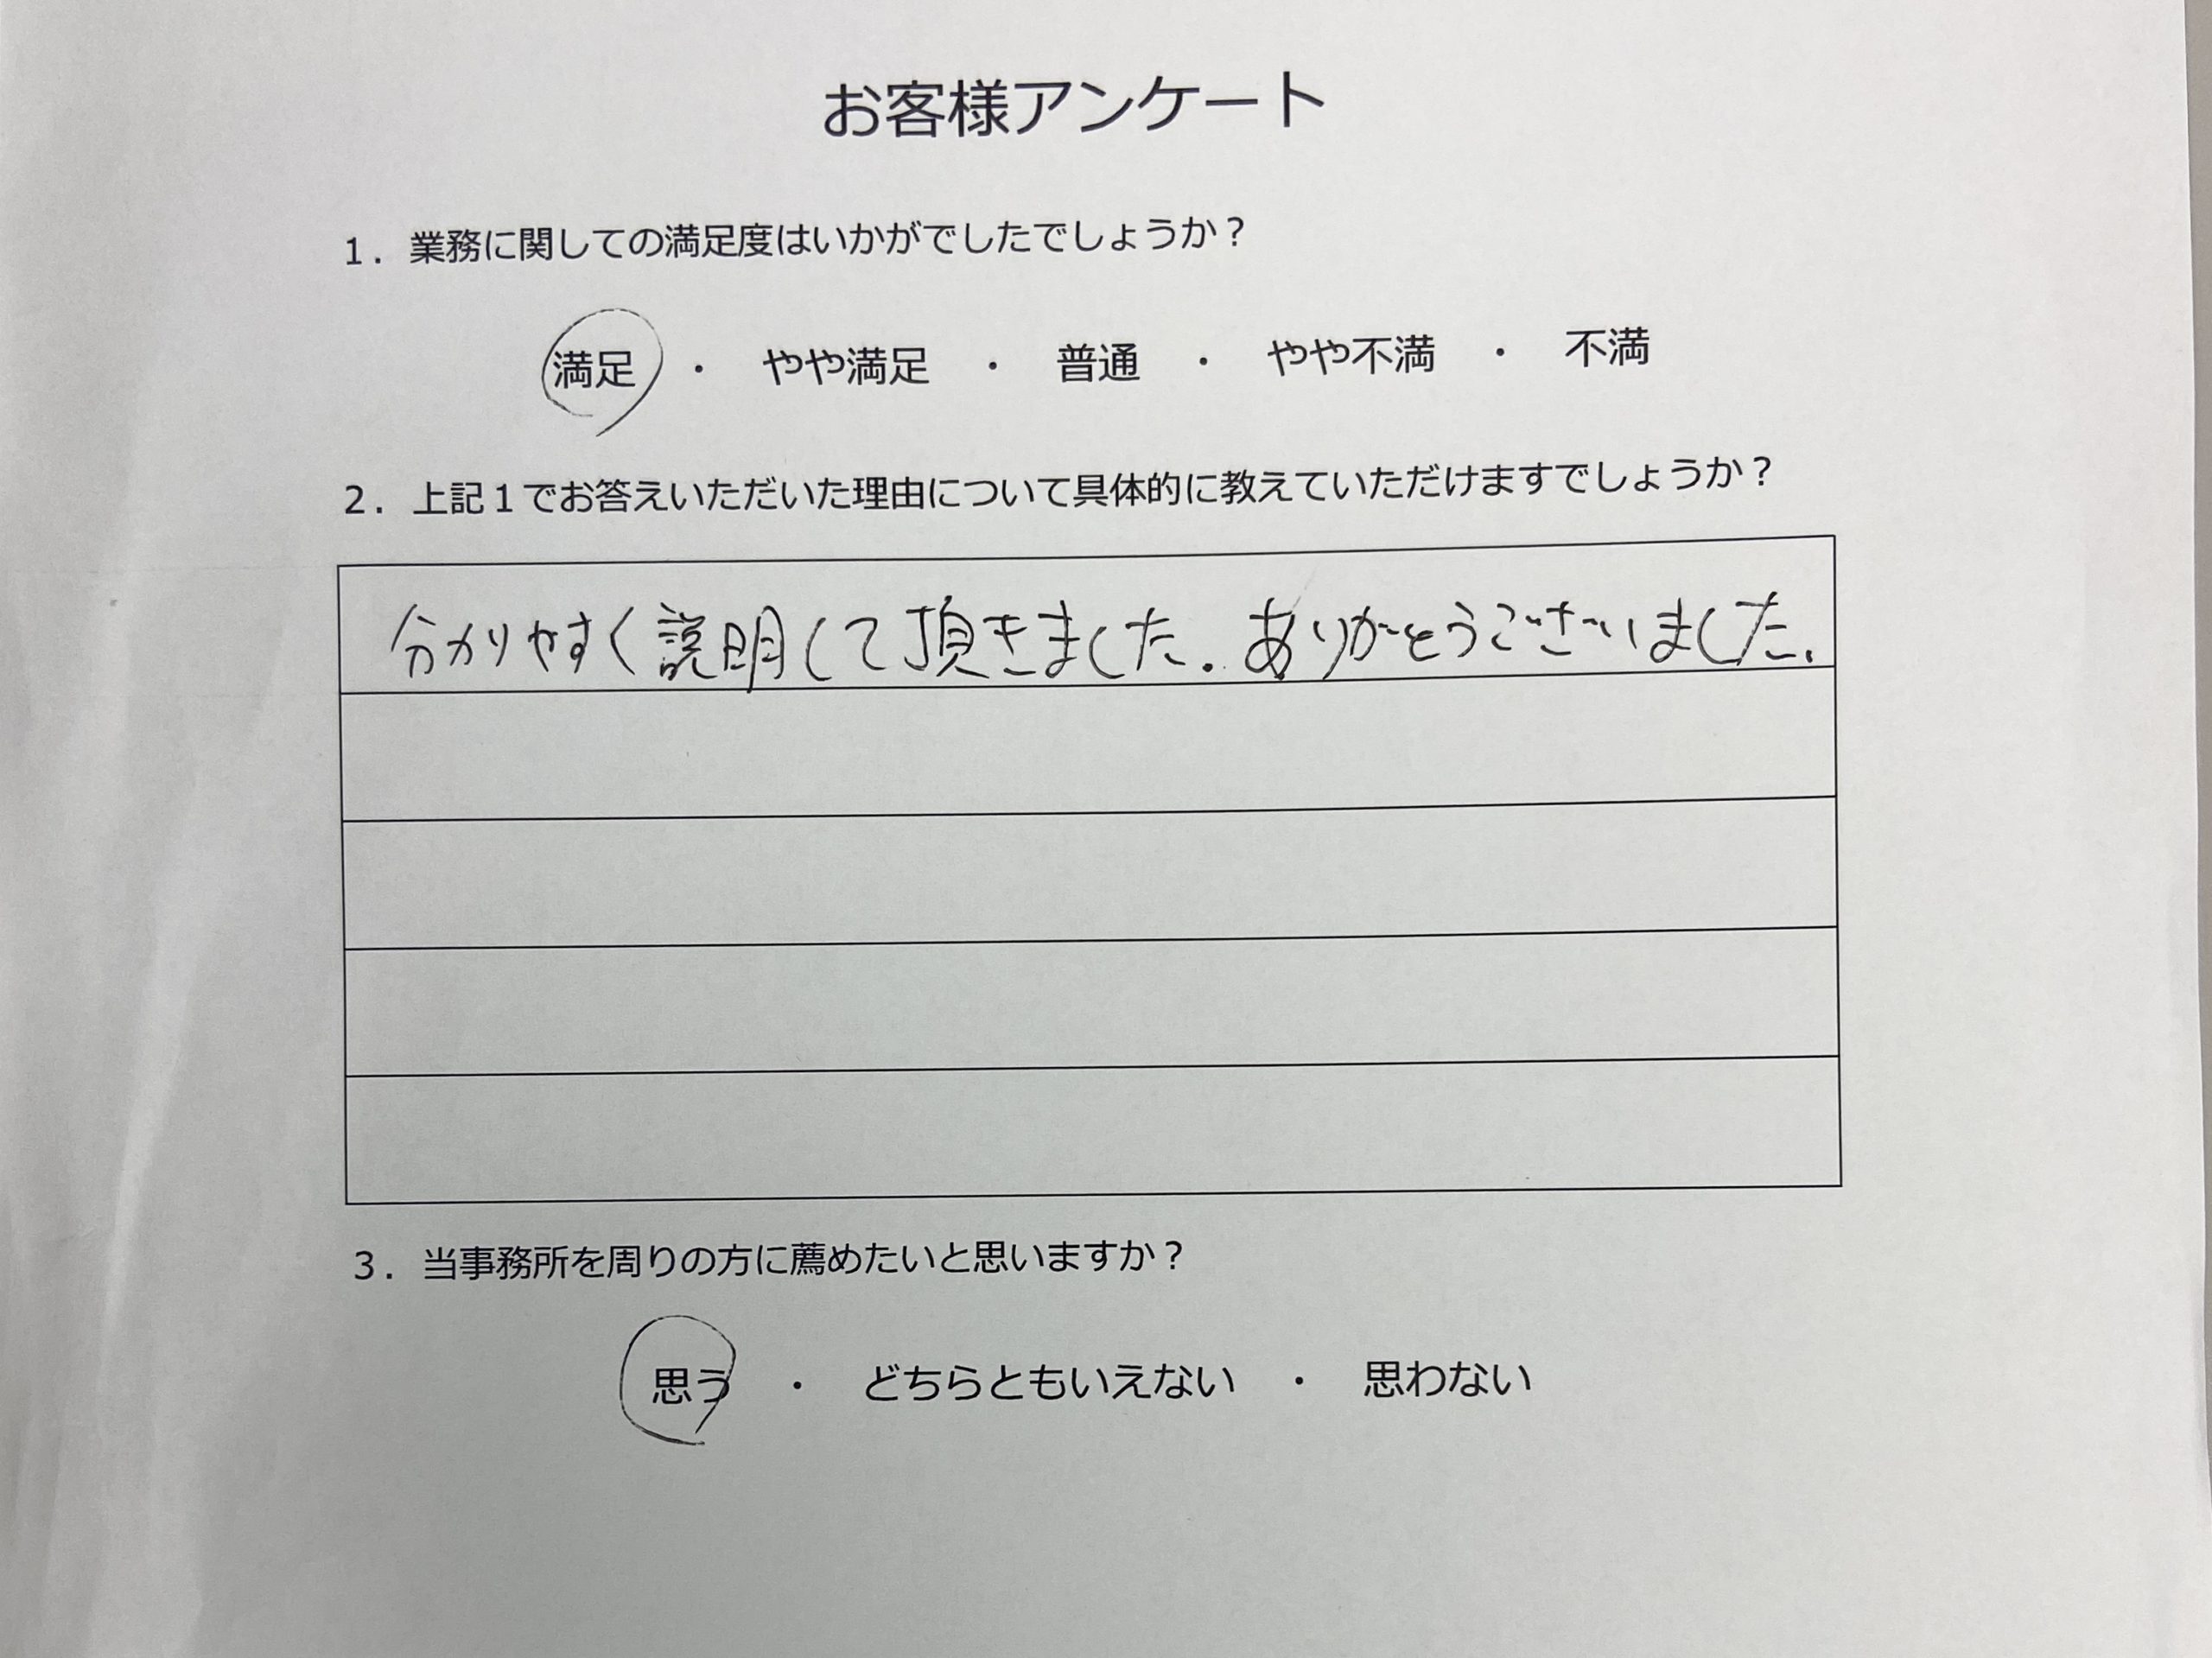 お客様アンケート
１．業務に関しての満足度はいかがでしたでしょうか？
満足　・　やや満足　・　普通　・　やや不満　・　不満
２．上記１でお答えいただいた理由について具体的に教えていただけますでしょうか？
分かりやすく説明して頂きました。ありがとうございました。
３．当事務所を周りの方に薦めたいと思いますか？
思う　・　どちらともいえない　・　思わない